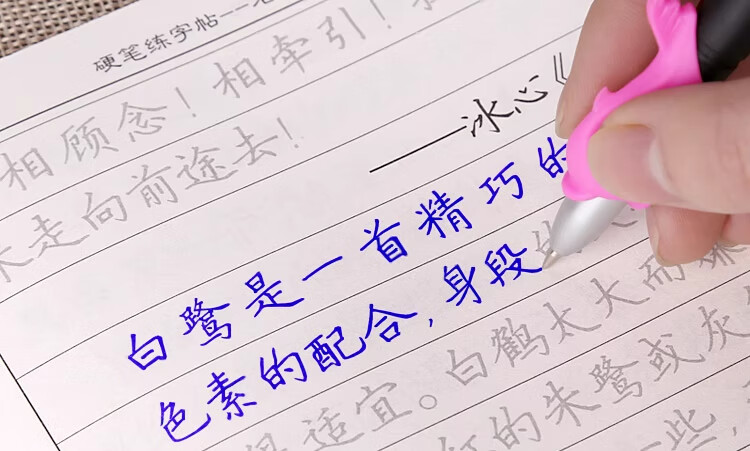 硬笔练字帖--老
相顾念！相牵引！
走向前途去！
——冰心《
白鹭是一首精巧的
色素的配合，身段
适宜。白鹤太大而嫌
的朱鹭或灰
一些，